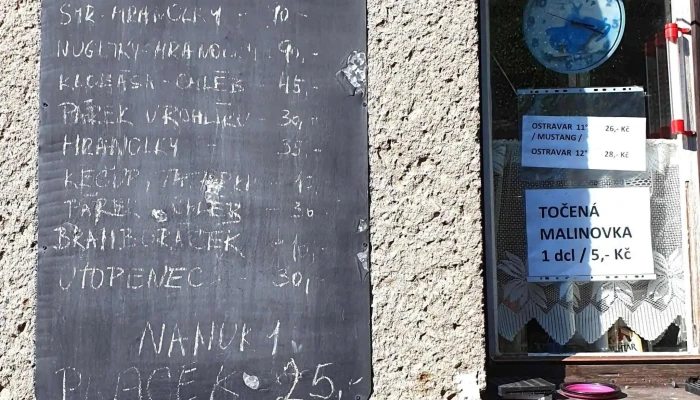 SÝR-HRANOLKY - 70-
NUGETKY-HRANOLKY 90,-
KLOBÁSA-CHLÉB 45,-
PÁREK V ROHLÍKU - 30,-
HRANOLKY
KEČUP, TATARKA
PÁREK CHLÉB - 30
BRAMBORÁČEK
UTOPENEC - 30,-
NANUK
PLACEK 25,-
OSTRAVAR 11° 26,- Kč
/ MUSTANG /
OSTRAVAR 12° 28,- Kč
TOČENÁ
MALINOVKA
1 dcl / 5,- Kč